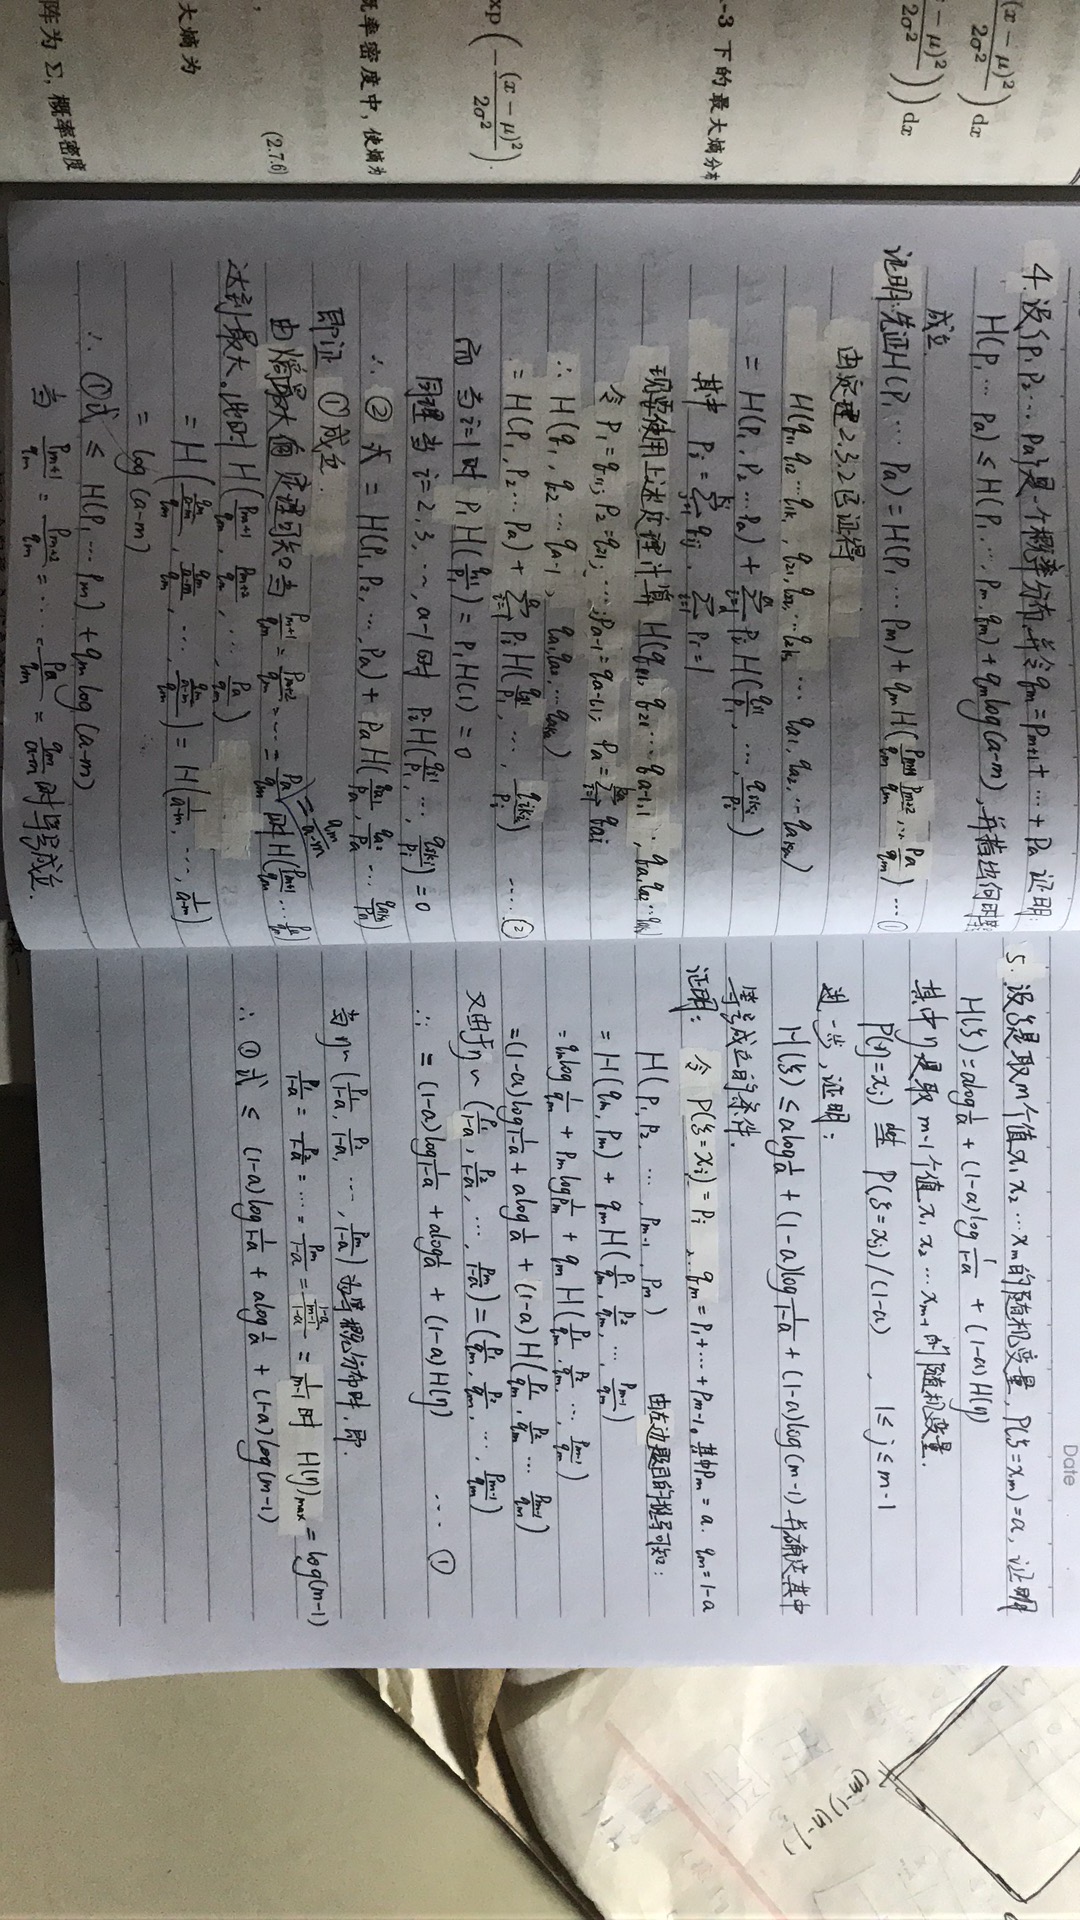 (x − μ)²
2σ²
) dx
− μ)²
2σ²
)) dx
-3 下的最大熵分布
xp ( − (x − μ)² / 2σ² ).
率密度中，使熵为
(2.7.6)
大熵为
阵为 Σ，概率密度
4. 设{P₁ P₂ … Pa}是一个概率分布，并令 qm = Pm+1 + … + Pa 证明:
H(P₁ … Pa) ≤ H(P₁, … Pm, qm) + qm log(a−m)，并指出何时等号
成立
证明: 先证 H(P₁ … Pa) = H(P₁, … Pm) + qm H(Pm+1/qm, Pm+2/qm, … Pa/qm) … ①
由定理 2.3.2 已证得
H(q11, q12 … q1k, q21, q22, … q2k2 … qa1, qa2, … qaka)
= H(P₁, P₂ … Pa) + Σ Pi H(qi1/Pi, …, qiki/Pi)
其中 Pi = Σ qij, Σ Pi = 1
现要使用上述定理计算 H(q11, q21 … qa-1,1, qa1 qa2 …
令 P₁ = q11, P₂ = q21, …, Pa-1 = qa-1,1, Pa = Σ qai
∴ H(q1, q2 … qa-1, qa1, qa2, … qak)
= H(P₁, P₂ … Pa) + Σ Pi H(qi1/Pi, …, qiki/Pi) …… ②
而当 i=1 时 P₁H(q11/P₁) = P₁H(1) = 0
同理当 i = 2, 3, …, a−1 时 Pi H(qi1/Pi, … qiki/Pi) = 0
∴ ② 式 = H(P₁, P₂, …, Pa) + Pa H(qa1/Pa, qa2/Pa … qaka/Pa)
即证 ①成立.
由熵最大值定理可知: 当 Pm+1/qm = Pm+2/qm = … = Pa/qm 时 H(Pm+1/qm … Pa/qm)
达到最大. 此时 H(Pm+1/qm, Pm+2/qm, …, Pa/qm)
= H(qm/a−m/qm, qm/a−m/qm, …, qm/a−m/qm) = H(1/a−m, …, 1/a−m)
= log(a−m)
∴ ①式 ≤ H(P₁, … Pm) + qm log(a−m)
当 Pm+1/qm = Pm+2/qm = … = Pa/qm = qm/a−m 时等号成立.
Date
5. 设ξ是取m个值x₁ x₂ … xm的随机变量, P(ξ=xm)=a, 证明
H(ξ) = a log 1/a + (1−a) log 1/1−a + (1−a) H(η)
其中 η 是取 m−1 个值 x₁ x₂ … xm-1 的随机变量.
P(η=xj) = P(ξ=xj)/(1−a), 1 ≤ j ≤ m−1
进一步, 证明:
H(ξ) ≤ a log 1/a + (1−a) log 1/1−a + (1−a) log(m−1) 并确定其中
等号成立的条件.
证明: 令 P(ξ=xi) = Pi, qm = P₁ + … + Pm-1, 其中 Pm = a, qm = 1−a
H(P₁, P₂, …, Pm-1, Pm) 由左边题目的推导可知:
= H(qm, Pm) + qm H(P₁/qm, P₂/qm, …, Pm-1/qm)
= qm log 1/qm + Pm log 1/Pm + qm H(P₁/qm, P₂/qm, …, Pm-1/qm)
= (1−a) log 1/1−a + a log 1/a + (1−a) H(P₁/qm, P₂/qm, … Pm-1/qm)
又由于 η ~ (P₁/1−a, P₂/1−a, …, Pm/1−a) = (P₁/qm, P₂/qm, …, Pm-1/qm)
∴ = (1−a) log 1/1−a + a log 1/a + (1−a) H(η) …. ①
当 η ~ (P₁/1−a, P₂/1−a, …, Pm/1−a) 为等概分布时, 即.
P₁/1−a = P₂/1−a = … = Pm/1−a = 1−a/m−1/1−a = 1/m−1 时 H(η)max = log(m−1)
∴ ①式 ≤ (1−a) log 1/1−a + a log 1/a + (1−a) log(m−1)
(3-1)(5-1)